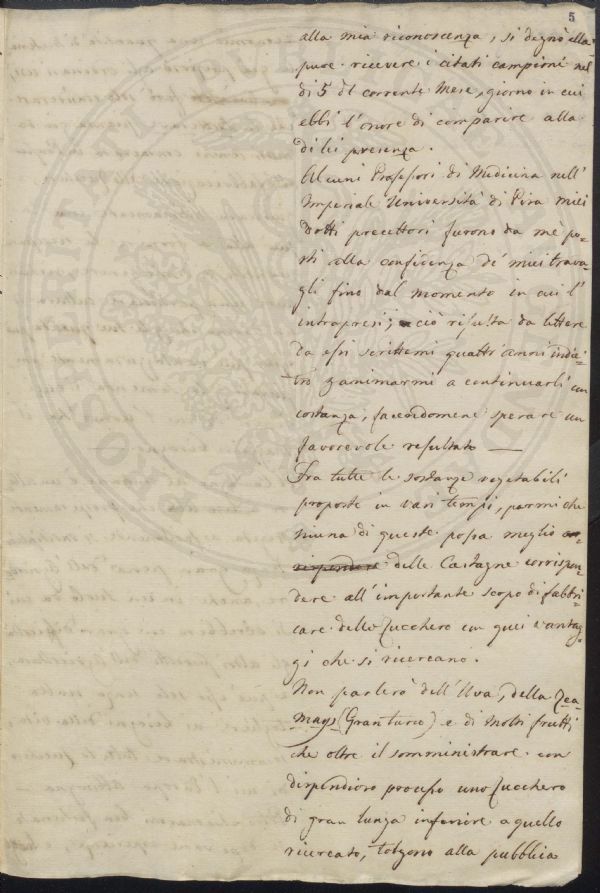 5
alla mia riconoscenza, si degnò ella
pure ricevere i citati campioni nel
di 5 del corrente Mese, giorno in cui
ebbi l'onore di comparire alla
di lei presenza.
Alcuni Professori di Medicina nell'
Imperiale Università di Pisa miei
Dotti precettori furono da mè po-
sti alla confidenza de' miei trava-
gli fino dal momento in cui l'
intrapresi; ciò risulta da lettere
da essi scrittemi quattr'anni indie-
tro p animarmi a continuarli con
costanza, facendomene sperare un
favorevole resultato —
Fra tutte le sostanze vegetabili
proposte in vari tempi, parmi che
niuna di queste possa meglio
rispondere delle Castagne corrispon-
dere all'importante scopo di fabbri-
care dello Zucchero con quei vantag-
gi che si ricercano.
Non parlerò dell'Uva, della Zea-
mays (Granturco) e di molti frutti
che oltre il somministrare con
dispendioso processo uno Zucchero
di gran lunga inferiore a quello
ricercato, tolgono alla pubblica